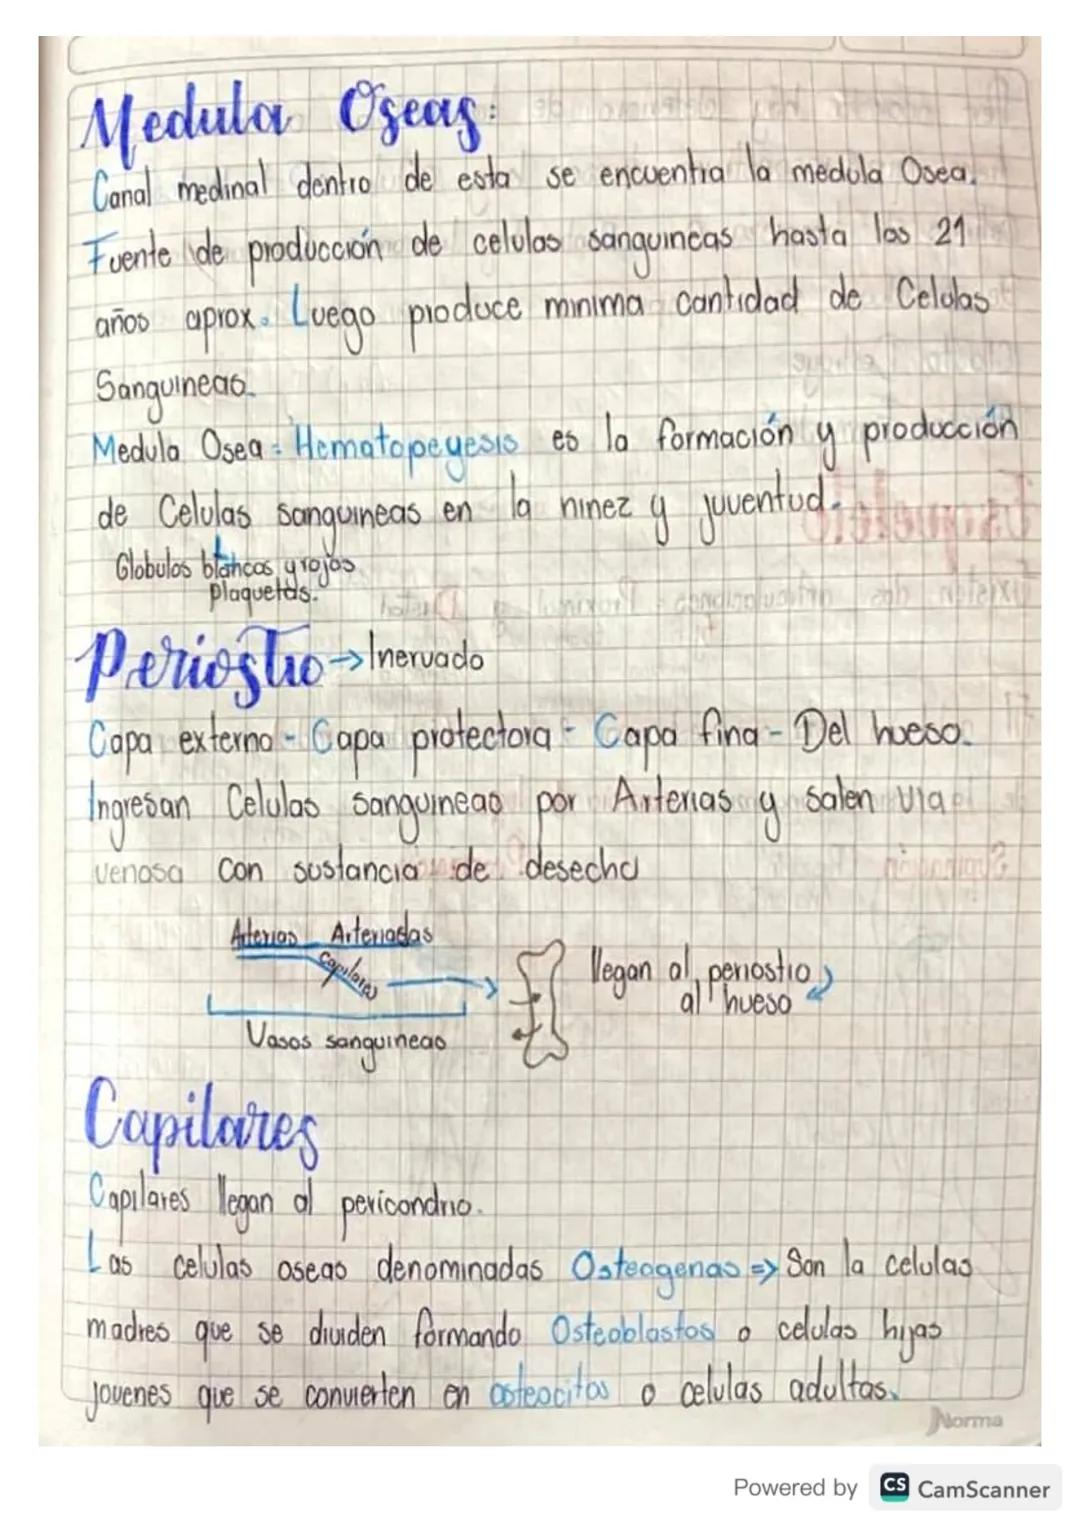 Medula Oseas:
Canal medinal dentro de esta se encuentra la medula Osea.
Fuente de producción de celulas sanguineas hasta los 21
años aprox. Luego produce minima cantidad de Celulas
Sanguineas.
Medula Osea = Hematopeyesis es la formación y producción
de Celulas sanguineas en la ninez y juventud.
Globulos blancos y rojos
plaquetas.
Periostio → Inervado
Capa externa - Capa protectora - Capa fina - Del hueso.
Ingresan Celulas sanguineas por Arterias y salen via
venosa con sustancia de desecho
Arterias Arteriadas
capilares
llegan al periostio
al hueso
Vasos sanguineas
Capilares
Capilares llegan al pericondrio.
Las celulas oseas denominadas Osteogenas => Son la celulas
madres que se dividen formando Osteoblastos o celulas hijas
jovenes que se convierten en osteocitos o celulas adultas.
Norma
Powered by CS CamScanner